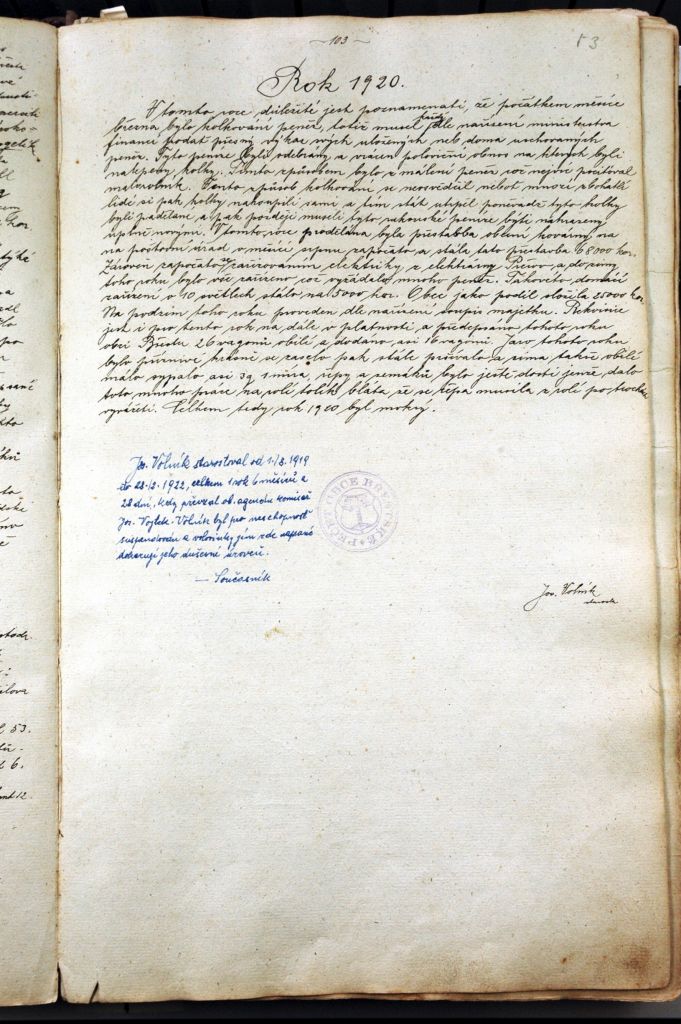 ~ 103 ~
53
Rok 1920.
V tomto roce důležité jest poznamenati, že počátkem měsíce
března bylo kolkování peněz, totiž musel každý dle nařízení ministerstva
financí podat přesný výkaz svých uložených neb doma uschovaných
peněz. Tyto peníze byly odebrány a vrácen poloviční obnos na kterých byli
nalepeny kolky. Tímto způsobem bylo zmálení peněz což nejvíc pociťoval
malorolník. Tento způsob kolkování se neosvědčil neboť mnozí zbohatlí
lidé si pak kolky nakoupili sami a tím stát utrpěl poněvadž tyto kolky
byli padělané a pak později museli tyto rakouské peníze býti nahrazeny
úplně novými. V tomto roce prodělána byla přestavba obecní kovárny na
na poštovní úřad v měsíci srpnu započato a stála tato přestavba 68000 kor.
Zároveň započato se zařizováním elektriky z elektrárny Přerov a do zimy
toho roku bylo vše zařízeno což vyžádalo mnoho peněz. Takovéto domácí
zařízení o 10 světlech stálo na 15000 kor. Obec jako podíl složila 25000 kor.
Na podzim toho roku proveden dle nařízení soupis majetku. Rekvisice
jest i pro tento rok na dále v platnosti a předepsáno tohoto roku
obci 26 vagonů obilí a dodáno asi 16 vagonů. Jaro tohoto roku
bylo příznivé krásně se zaselo pak stále pršívalo a zima takže obilí
málo sypalo asi 3q 1 míra, řepy a zemáků bylo ještě dosti jenže dalo
toto mnoho práce na poli tolik bláta že se řepa musila z rolí po trochu
vyvážeti. Celkem tedy rok 1920 byl mokrý.
Jos. Volník starostoval od 1./8. 1919
do 28./2. 1922, celkem 1 rok 6 měsíců a
28 dní, kdy převzal ob. agendu komisař
Jos. Vojtek. Volník byl pro neschopnost
suspendován a volovinky jím zde napsané
dokazují jeho duševní úroveň.
— Současník
Jos. Volník
starosta